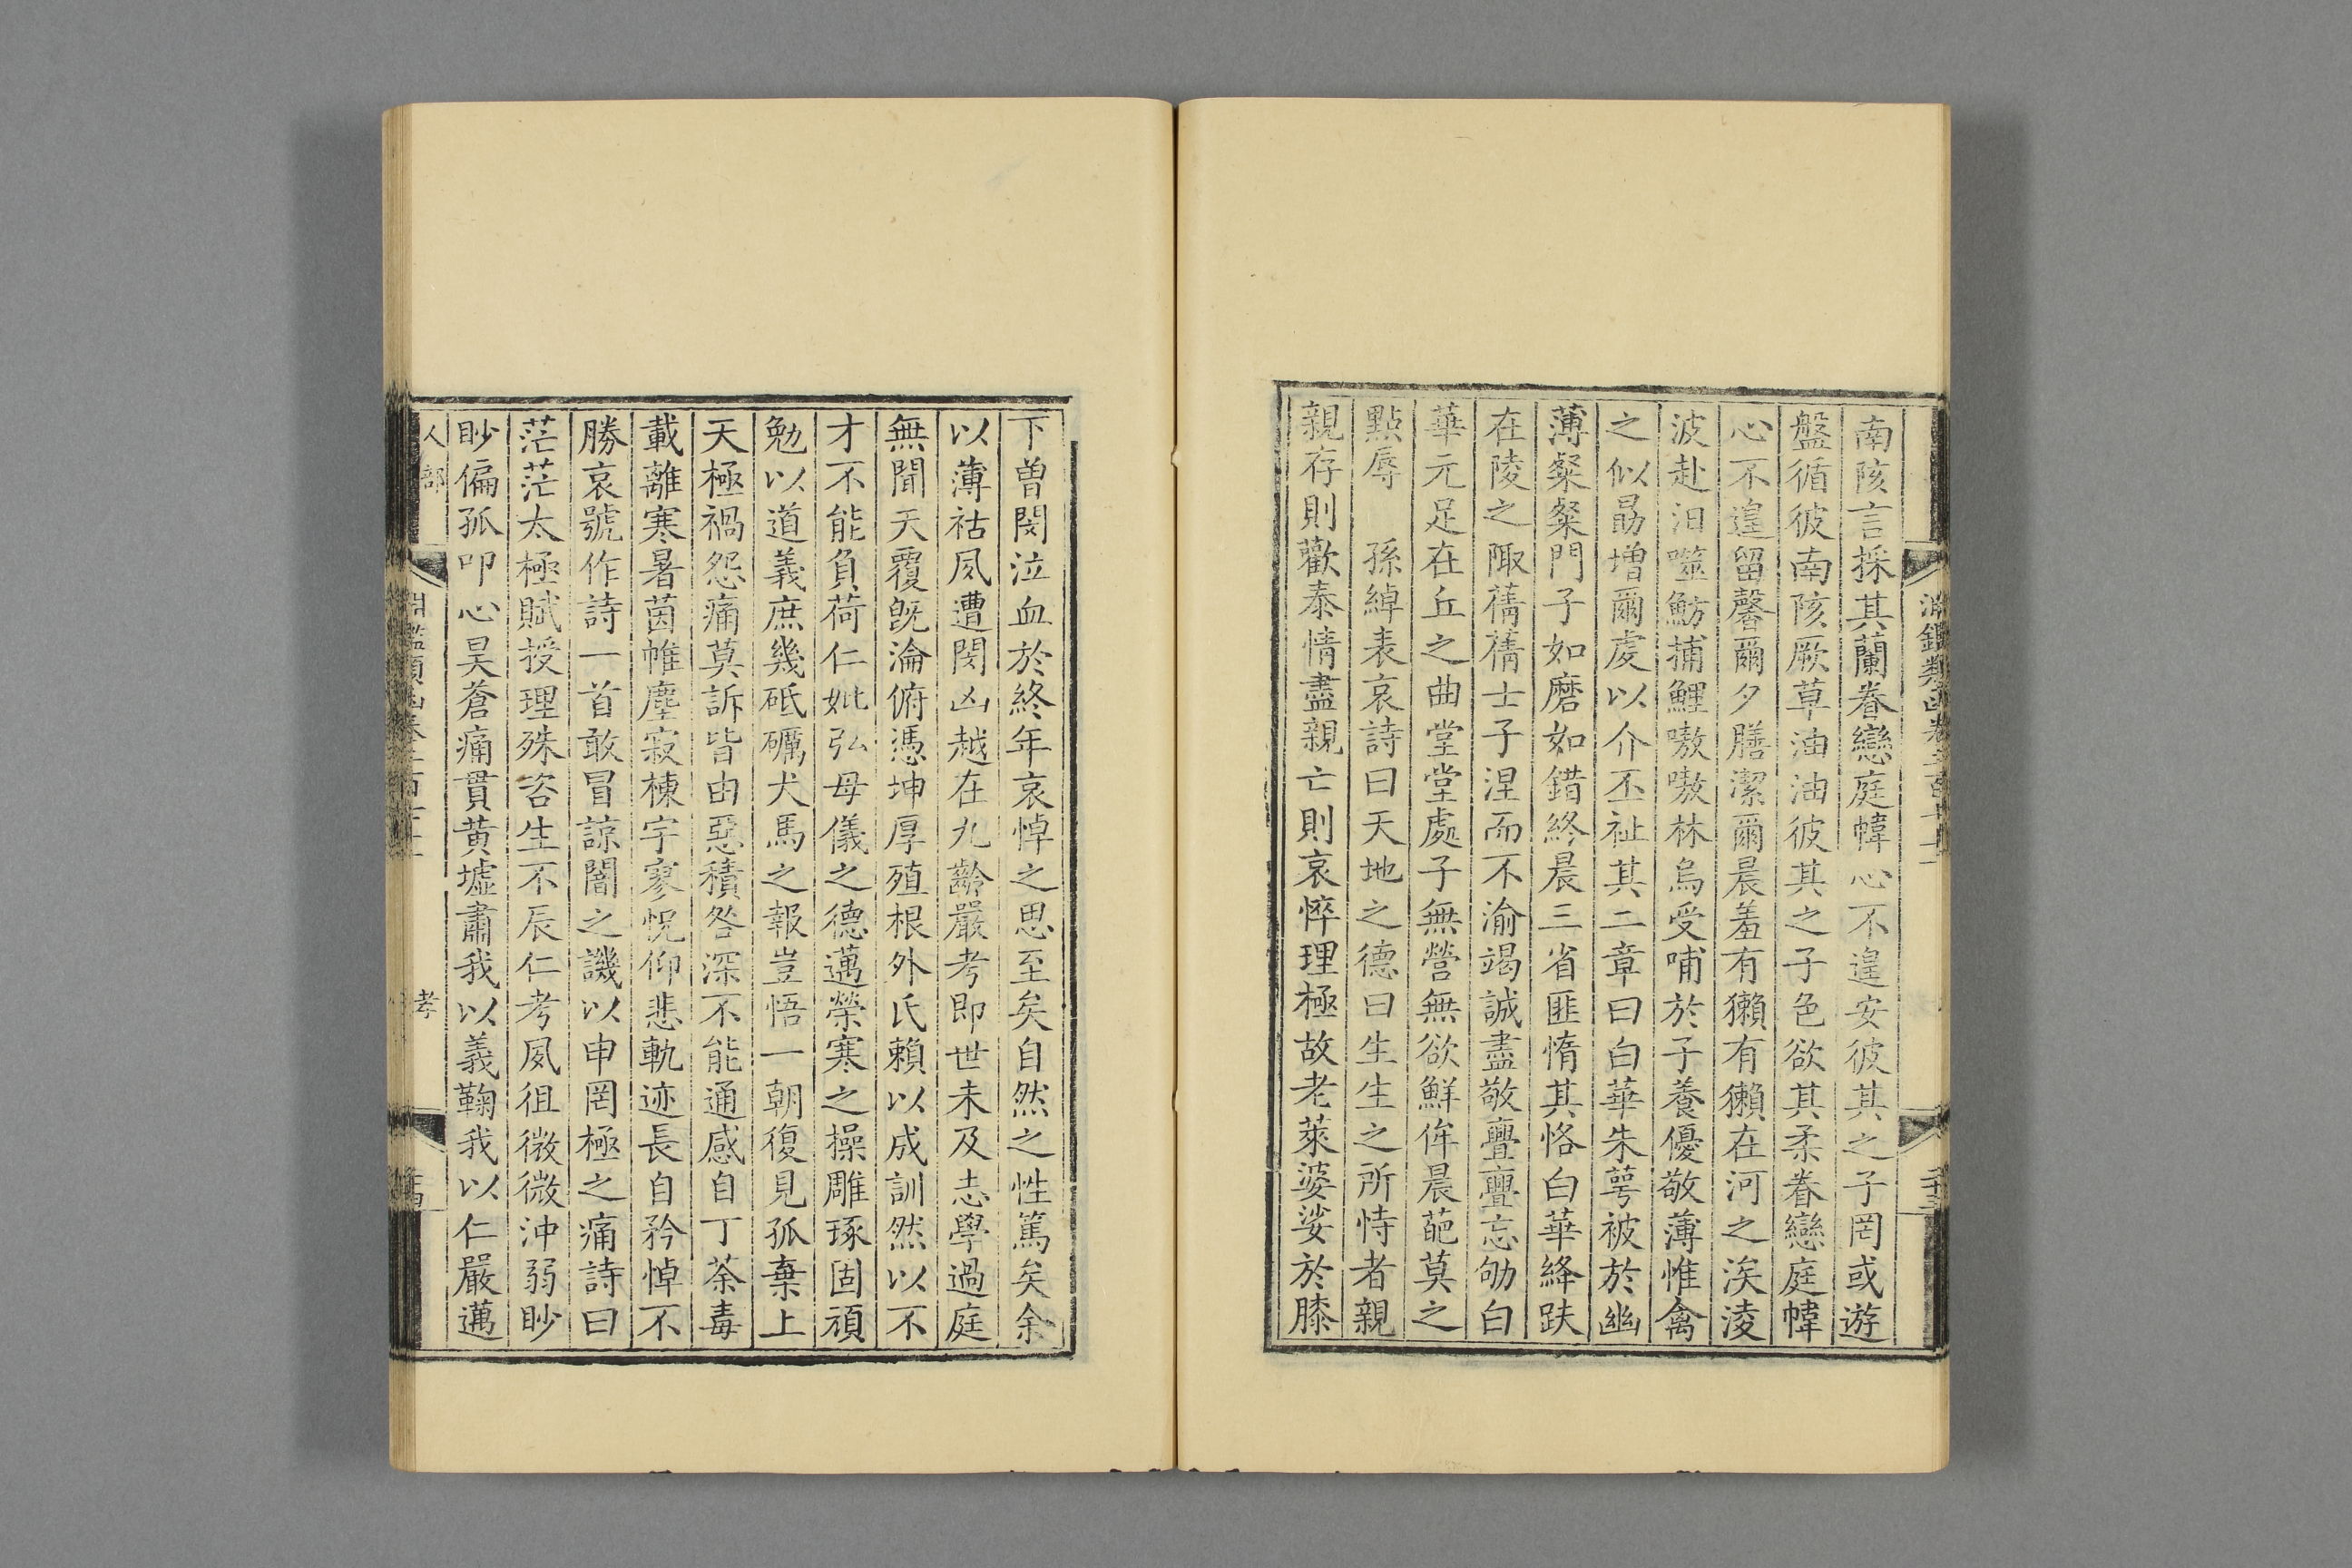 南陔言採其蘭眷戀庭幃心不遑安彼其之子罔或遊
盤循彼南陔厥草油油彼其之子色欲其柔眷戀庭幃
心不遑留馨爾夕膳潔爾晨羞有獺有獺在河之涘淩
波赴汨噬魴捕鯉嗷嗷林烏受哺於子養優敬薄惟禽
之似勗增爾虔以介丕祉其二章曰白華朱萼被於幽
薄粲粲門子如磨如錯終晨三省匪惰其恪白華絳趺
在陵之陬蒨蒨士子涅而不渝竭誠盡敬亹亹忘劬白
華元足在丘之曲堂堂處子無營無欲鮮侔晨葩莫之
點辱　孫綽表哀詩曰天地之德曰生生之所恃者親
親存則歡泰情盡親亡則哀悴理極故老萊婆娑於膝
下曾閔泣血於終年哀悼之思至矣自然之性篤矣余
以薄祜夙遭閔凶越在九齡嚴考即世未及志學過庭
無聞天覆旣淪俯憑坤厚殖根外氏賴以成訓然以不
才不能負荷仁妣弘母儀之德邁榮寒之操雕琢固頑
勉以道義庶幾砥礪犬馬之報豈悟一朝復見孤棄上
天極禍怨痛莫訴皆由惡積咎深不能通感自丁荼毒
載離寒暑茵帷塵寂棟宇寥怳仰悲軌迹長自矜悼不
勝哀號作詩一首敢冒諒闇之譏以申罔極之痛詩曰
茫茫太極賦授理殊咨生不辰仁考夙徂微微沖弱眇
眇偏孤叩心昊蒼痛貫黃墟肅我以義鞠我以仁嚴邁
人部
孝